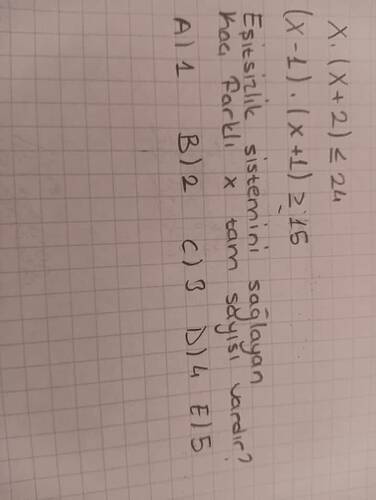 x.(x+2) ≤ 24
(x-1).(x+1) ≥ 15
Eşitsizlik sistemini sağlayan
kaç farklı x tam sayısı vardır?
A) 1 B) 2 C) 3 D) 4 E) 5